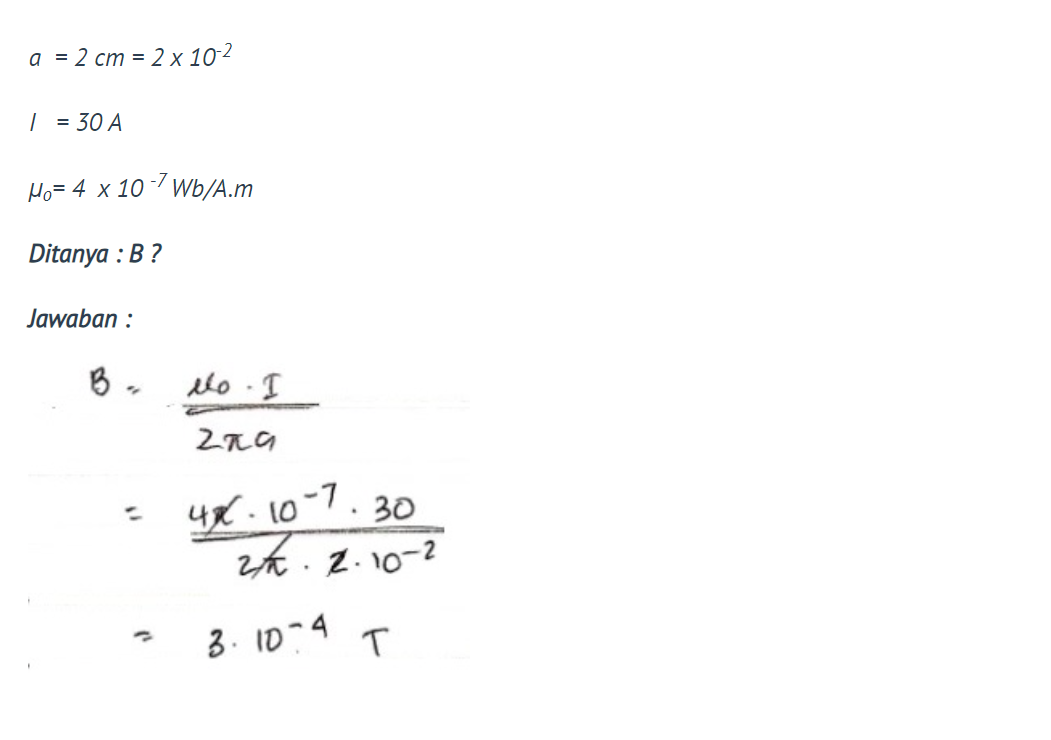 a = 2 cm = 2 x 10⁻²
I = 30 A
μ₀= 4 x 10 ⁻⁷ Wb/A.m
Ditanya : B ?
Jawaban :
B = μo . I
2πa
= 4π . 10⁻⁷ . 30
2π . 2 . 10⁻²
= 3 . 10⁻⁴ T